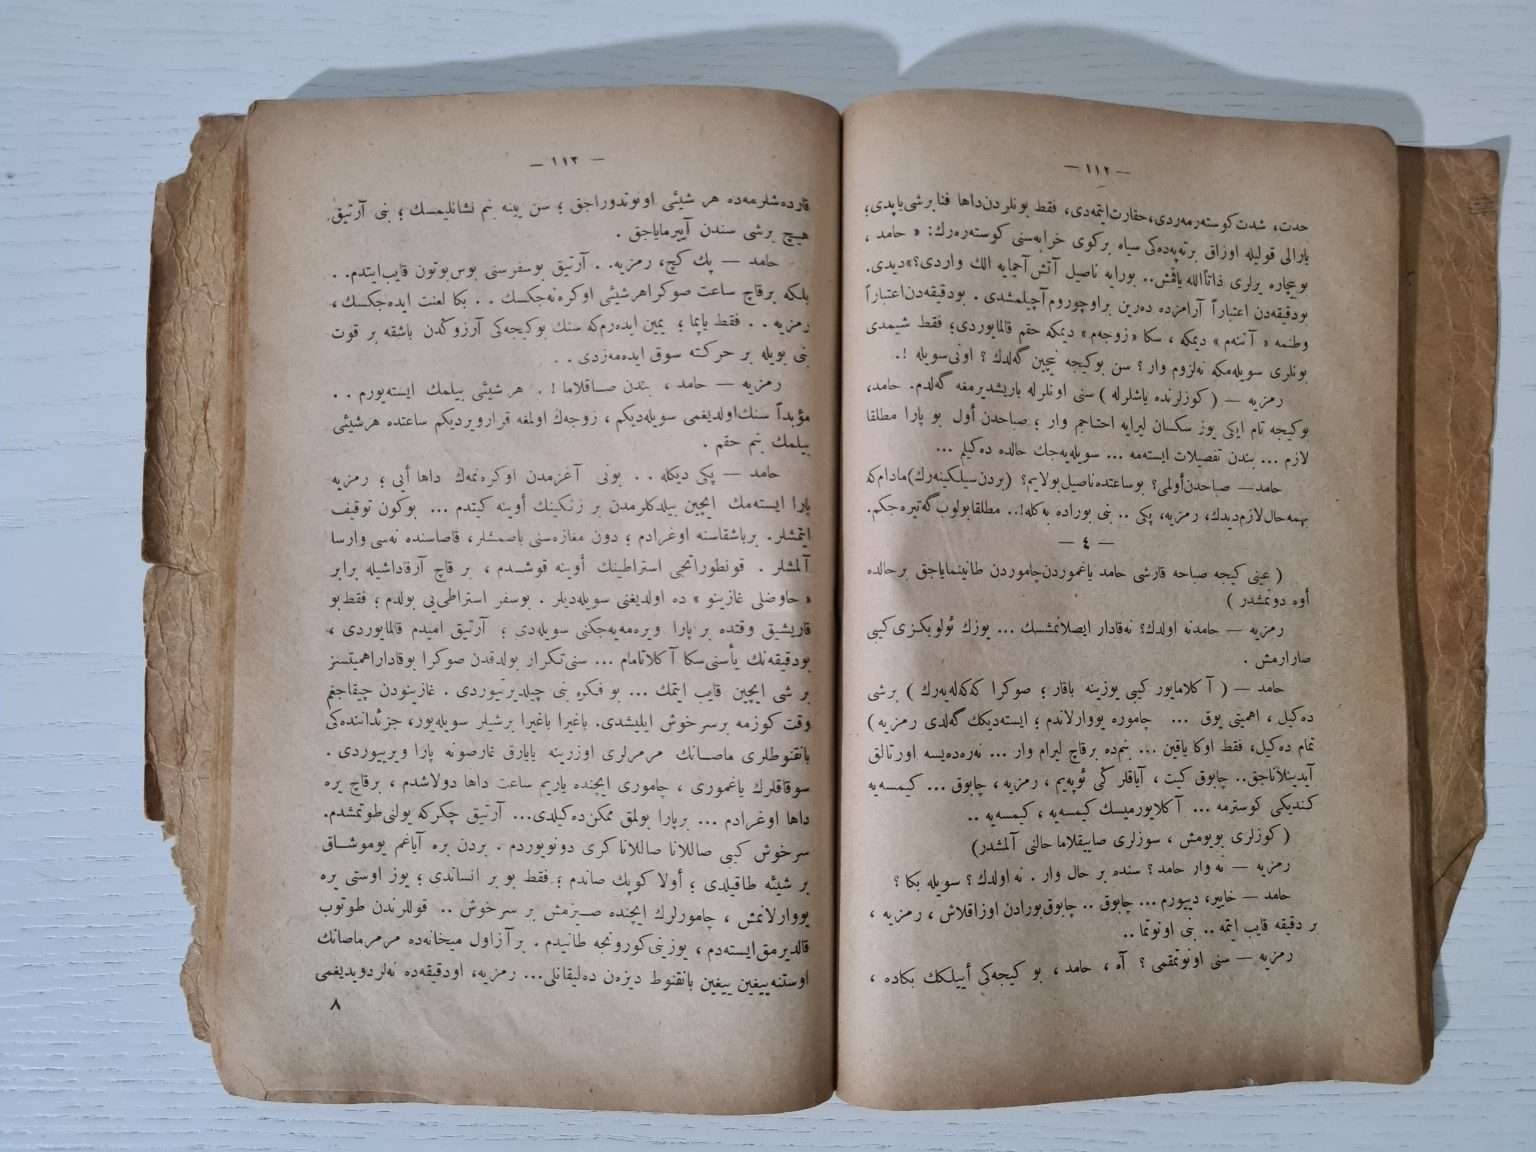 — ١١٢ —
حدت، شدت كوسته‌رمه‌ردی، حقارت ایتمه‌دی، فقط بونلردن داها فنا برشی یاپدی؛
یارالی قولیله اوزاق برته‌په‌ده‌كی سیاه بركوی خرابه‌سنی كوسته‌ره‌رك: « حامد ،
بوبیچاره یرلری ذاتاً الله یاقمش.. بورایه ناصیل آتش آحیمایه الك واردی؟» دیدی.
بودقیقه‌دن اعتباراً آرامزده ده‌رین براوچوروم آچیلمشدی . بودقیقه‌دن اعتباراً
وطنمه « آننه‌م » دیمكه ، سكا « زوجه‌م » دیمكه حقم قالمایوردی؛ فقط شیمدی
بونلری سویله‌مكه نه‌لزوم وار ؟ سن بوكیجه نیچین گه‌لدك ؟ اونی سویله !.
رمزیه — ( كوزلرنده یاشلرله ) سنی اونلرله باریشدیرمغه گه‌لدم. حامد،
بوكیجه تام ایكی یوز سكسان لیرایه احتیاجم وار ؛ صباحدن أول بو پارا مطلقا
لازم ... بندن تفصیلات ایسته‌مه ... سویله‌یه‌جك حالده ده‌كیلم ...
حامد — صباحدن أولمی؟ بوساعتده ناصیل بولایم؟ (بردن سیلكینه‌رك) مادام‌كه
بهمه‌حال لازم دیدك، رمزیه، پكی .. بنی بوراده به‌كله!.. مطلقا بولوب گه‌تیره‌جكم.
— ٤ —
( عینی كیجه صباحه قارشی حامد یاغموردن چاموردن طانینمایاجق برحالده
أوه دونمشدر )
رمزیه — حامد نه اولدك؟ نه‌قادار ایصلانمشسك ... یوزك ئولو بكزی كیبی
صارارمش .
حامد — ( آكلامایور كیبی یوزینه باقار ؛ صوكرا كه‌كه‌له‌یه‌رك ) برشی
ده‌كیل ، اهمیتی یوق ... چاموره یووارلاندم ؛ ایسته‌دیكك گه‌لدی رمزیه )
تمام ده‌كیل، فقط اوكا یاقین ... بنم‌ده برقاچ لیرام وار ... نه‌ره‌ده‌یسه اورتالق
آیدینلاناجق.. چابوق كیت ، آیاقلر كی ئوپه‌یم ، رمزیه ، چابوق ... كیمسه‌یه
كندیكی كوسترمه ... آكلایورمیسك كیمسه‌یه ، كیمسه‌یه ..
( كوزلری بویومش ، سوزلری صاییقلاما حالنی آلمشدر)
رمزیه — نه وار حامد؟ سنده بر حال وار . نه اولدك؟ سویله بكا ؟
حامد — خایر، دییورم ... چابوق .. چابوق بورادن اوزاقلاش ، رمزیه ،
بر دقیقه قایب ایتمه .. بنی اونوتما ..
رمزیه — سنی اونوتمقمی ؟ آه ، حامد ، بو كیجه‌كی أییلكك بكاده ،
— ١١٣ —
قارده‌شلرمه‌ده هر شیئی اونوتدوراجق ؛ سن یینه بنم نشانلیمسك ؛ بنی آرتیق
هیچ برشی سندن آییرمایاجق .
حامد — پك كچ، رمزیه. . آرتیق بوسفر سنی بوس‌بوتون قایب‌ایتدم. .
بلكه برقاچ ساعت صوكرا هرشیئی اوكره‌نه‌جكسك . . بكا لعنت ایده‌جكسك ،
رمزیه . . فقط یاپما ؛ یمین ایده‌رم‌كه سنك بوكیجه‌كی آرزوكدن باشقه بر قوت
بنی بویله بر حركته سوق ایده‌مه‌زدی . .
رمزیه — حامد ، بندن صاقلاما !. هر شیئی بیلمك ایسته‌یورم . .
مؤبداً سنك اولدیغمی سویله‌دیكم ، زوجه‌ك اولمغه قرار ویردیكم ساعتده هرشیئی
بیلمك بنم حقم .
حامد — پكی دیكله . . بونی آغزمدن اوكره‌نمه‌ك داها أیی ؛ رمزیه
پارا ایسته‌مك ایچین بیلدكلرمدن بر زنكینك أوینه كیتدم ... بوكون توقیف
ایتمشلر. برباشقاسنه اوغرادم ؛ دون مغازه‌سنی باصمشلر، قاصاسنده نه‌سی وارسا
آلمشلر . قونطوراتجی استراطینك أوینه قوشدم ، بر قاچ آرقاداشیله برابر
« حاوضلی غازینو » ده اولدیغنی سویله‌دیلر . بوسفر استراطی‌یی بولدم ؛ فقط بو
قاریشیق وقتده بر پارا ویره‌مه‌یه‌جكنی سویله‌دی ؛ آرتیق امیدم قالمایوردی ،
بودقیقه‌نك یأسنی سكا آكلاتامام ... سنی تكرار بولدقدن صوكرا بوقادار اهمیتسز
بر شی ایچین قایب ایتمك ... بو فكره بنی چیلدیرتیوردی . غازینودن چیقاجغم
وقت كوزمه برسرخوش ایلیشدی. باغیرا باغیرا برشیلر سویله‌یور، جزئداننده‌كی
بانقنوطلری ماصانك مرمرلری اوزرینه یایارق غارصونه پارا ویرییوردی .
سوقاقلرك یاغموری ، چاموری ایچنده یاریم ساعت داها دولاشدم ، برقاچ یره
داها اوغرادم ... برپارا بولمق ممكن ده‌كیلدی... آرتیق چكركه یولنی طوتمشدم.
سرخوش كیبی صاللانا صاللانا كری دونویوردم . بردن بره آیاغم یوموشاق
بر شیئه طاقیلدی ؛ أولا كوپك صاندم ؛ فقط بو بر انساندی ؛ یوز اوستی یره
یووارلانمش ، چامورلرك ایچنده صیزمش بر سرخوش .. قوللرندن طوتوب
قالدیرمق ایسته‌دم ، یوزینی كورونجه طانیدم . بر آز اول میخانه‌ده مرمر ماصانك
اوستنه ییغین ییغین بانقنوط دیزه‌ن ده‌لیقانلی... رمزیه، اودقیقه‌ده نه‌لر دویدیغمی
٨